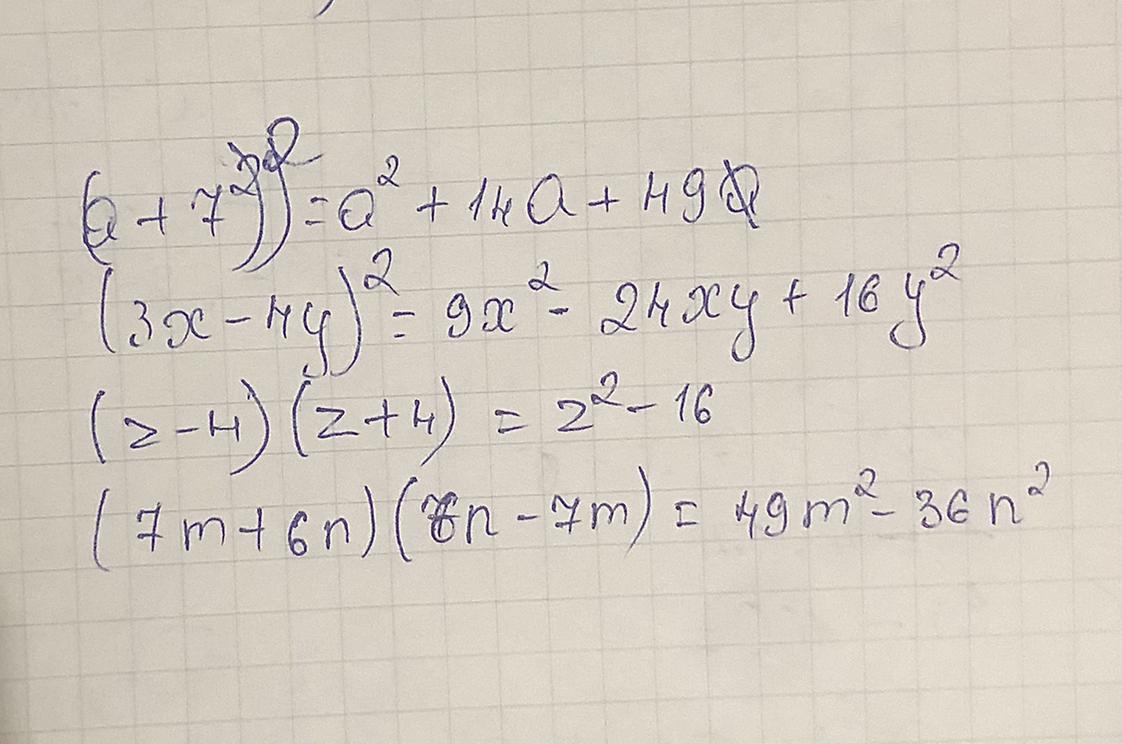 (a + 7)² = a² + 14a + 49
(3x - 4y)² = 9x² - 24xy + 16y²
(z - 4)(z + 4) = z² - 16
(7m + 6n)(6n - 7m) = 49m² - 36n²